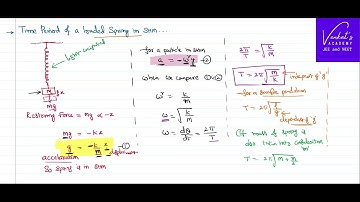 → Time Period of a loaded Spring in SHM...
Venkat's
ACADEMY
JEE and NEET
m
mg
Restoring force = mg ∝ -x
mg = -kx
a = -k/m x —①
acceleration
displacement
So spring is in SHM
for a particle in SHM
a = -ω²y —②
when we compare ①&②
ω² = k/m
ω = √k/m
ω = dθ/dt = 2π/T
2π/T = √k/m
T = 2π√m/k
independent of 'g'
for a Simple pendulum
T = 2π√l/g
dependent of 'g'
(If mass of spring is
also taken into consideration
T = 2π√